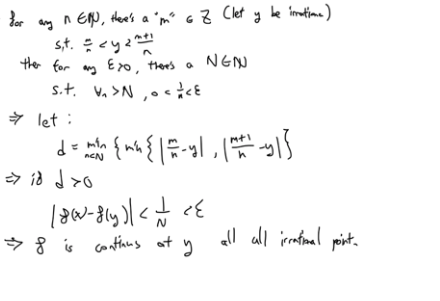 for any n ∈ ℕ, there's a "m" ∈ Z (let y be irrational)
s.t. m/n < y < m+1/n
then for any ε>0, there's a N∈ℕ
s.t. ∀n>N , 0 < 1/n < ε
⇒ let :
d = min n<N { min { |m/n - y| , |m+1/n - y| }
⇒ if d > 0
|f(x)-f(y)| < 1/N < ε
⇒ f is continus at y all all irrational point.